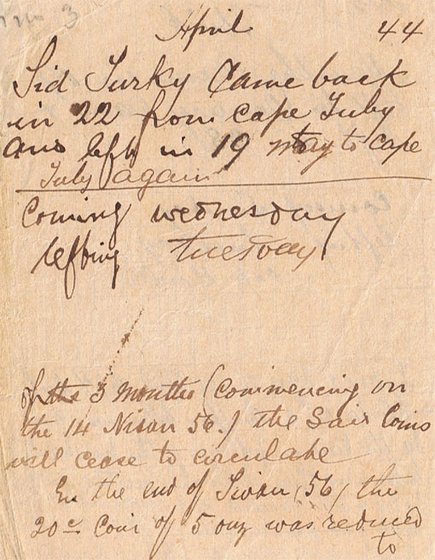 April 44
Sid Turky Came back
in 22 from cape Juby
and left in 19 may to cape
Juby again
Coming wednesday
lefting tuesday
of the 3 months (commencing on
the 14 Nisan 56.) the said Coins
will cease to circulate
En the end of Sivan (56) the
20c Coin of 5 ouz was reduced
to